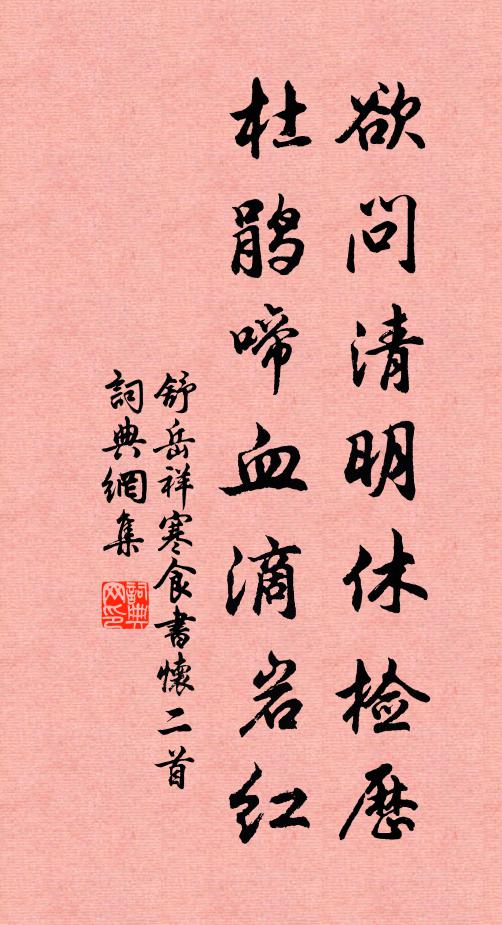 欲问清明休检历
杜鹃啼血滴岩红
舒岳祥寒食書懷二首
詞典網集
詞典网印